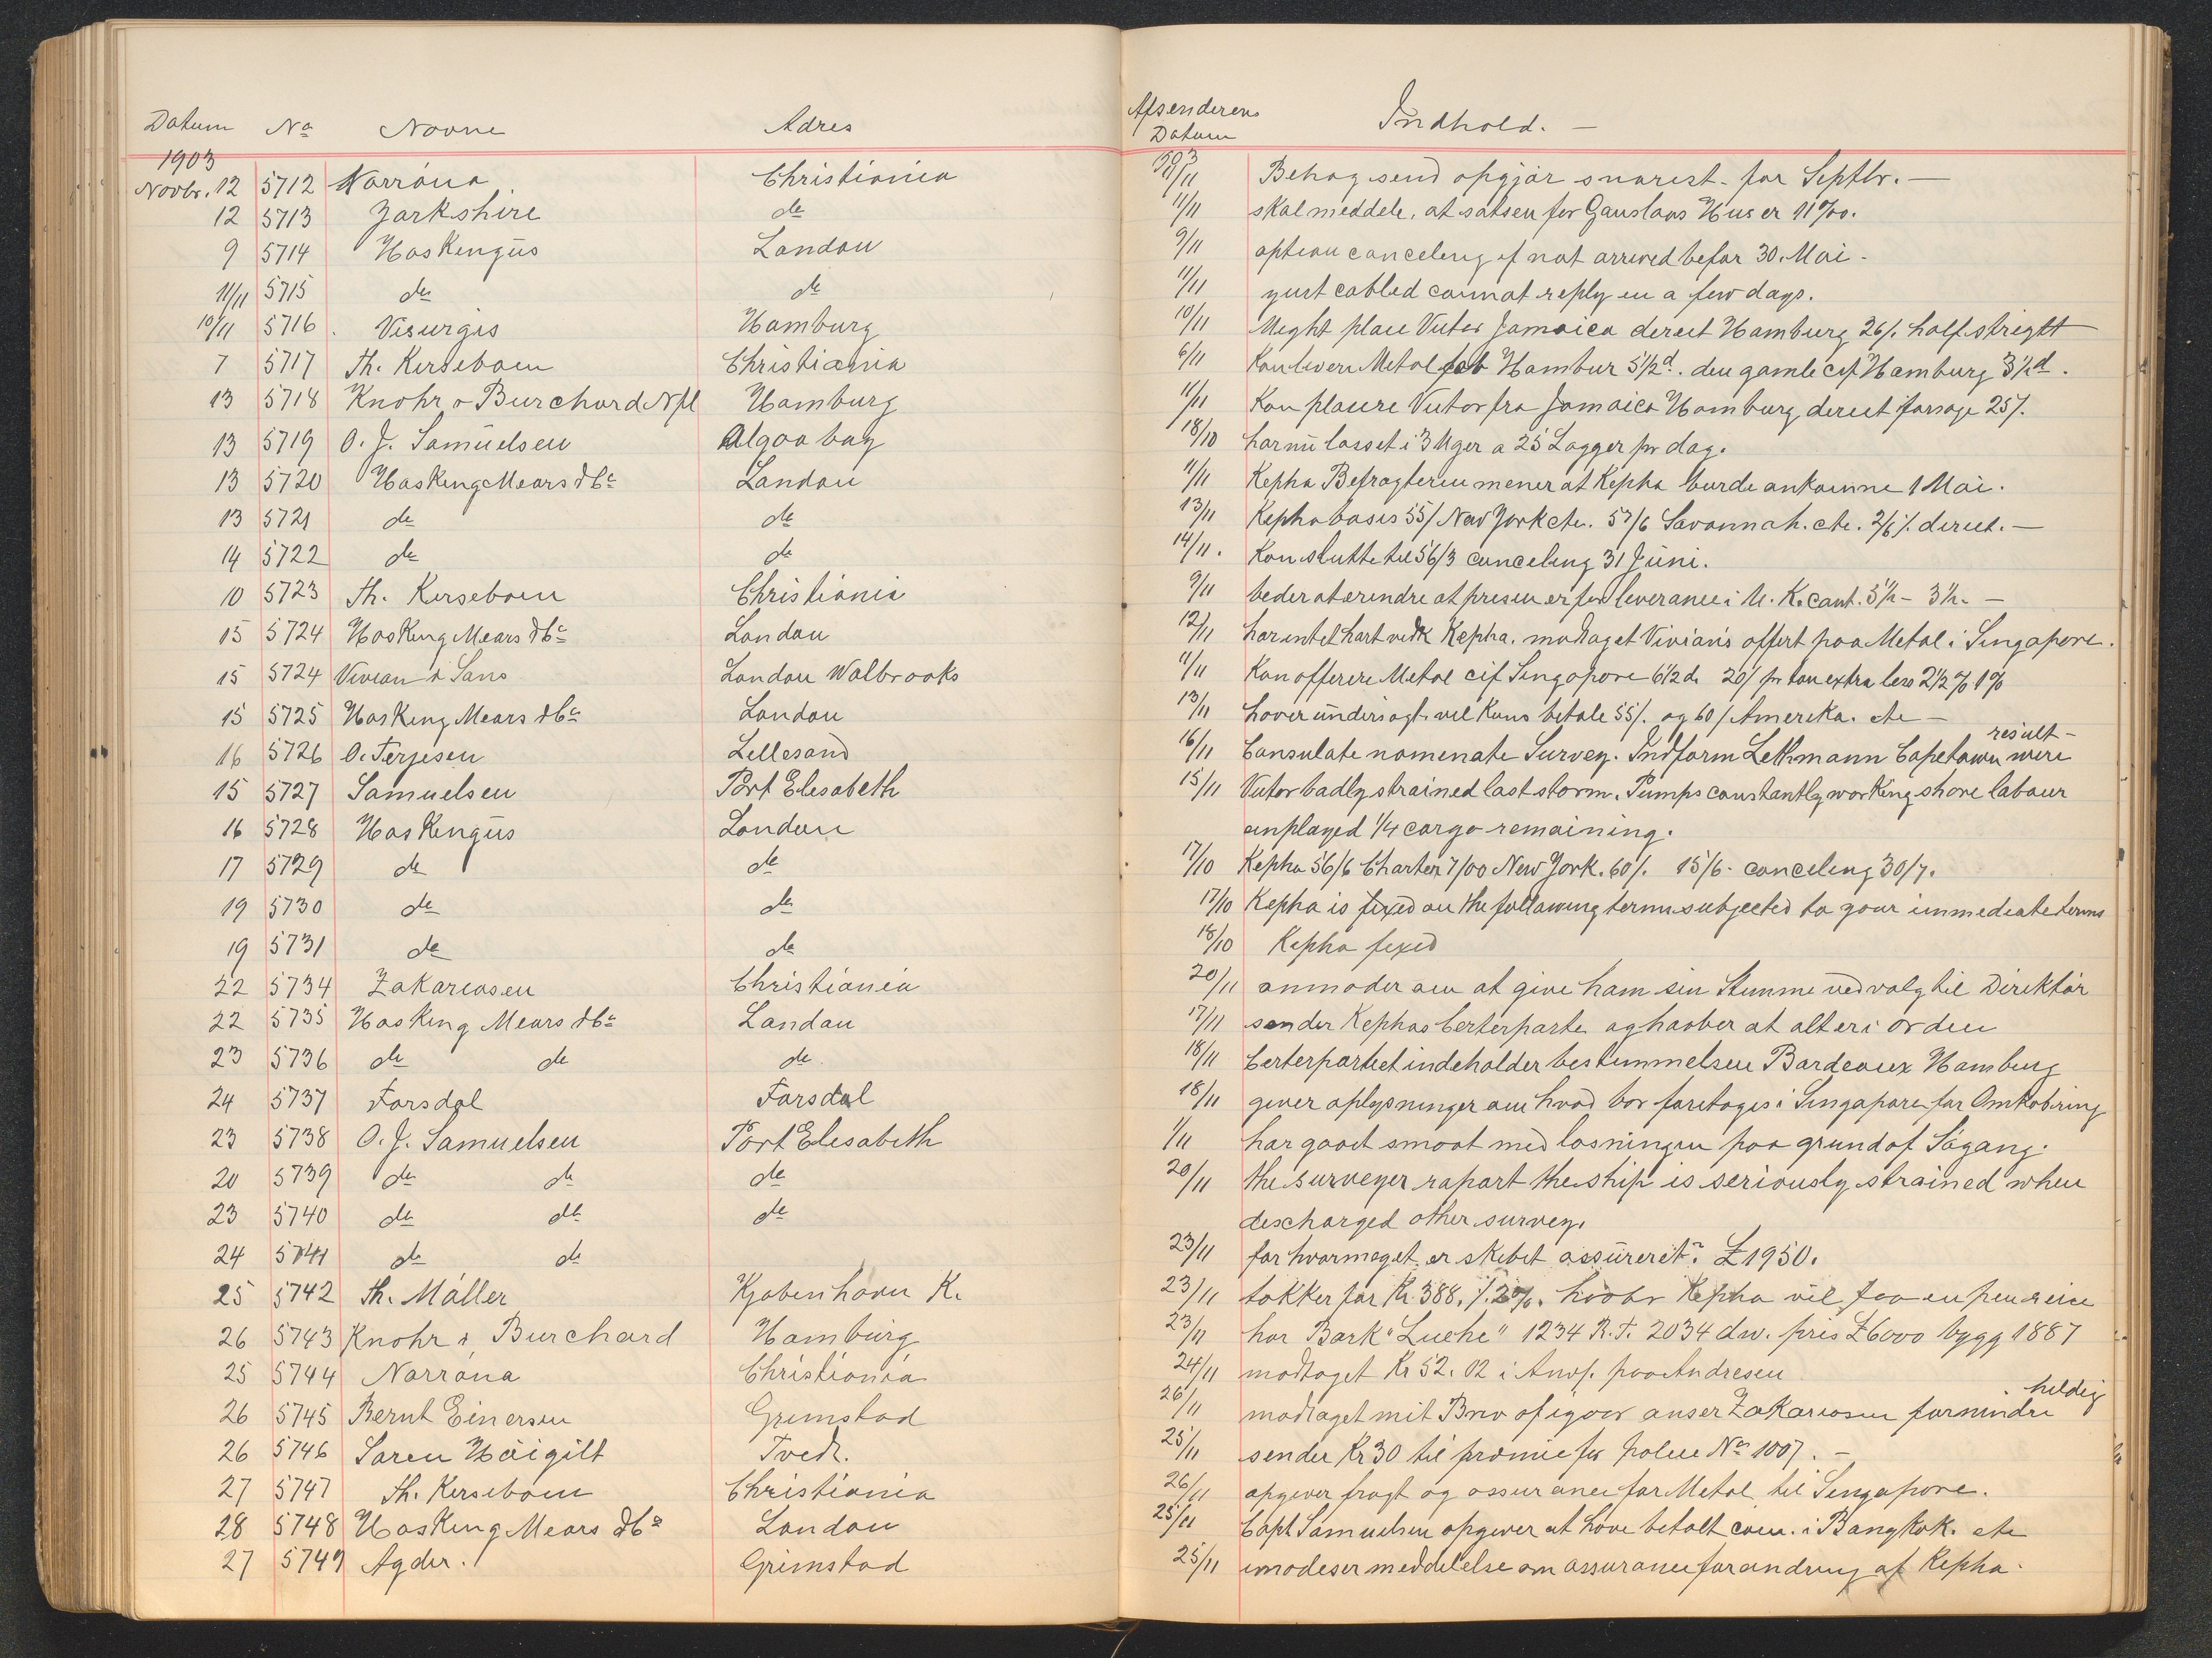 Datum No Navne Adres Afsenderens Datum Indhold. —
1903 1903
Novbr. 12 5712 Norröna Christiania 11/11 Behag send opgjör snarest. for Septbr. —
12 5713 Yorkshire do 11/11 skal meddele, at satsen for Gauslaas Hus er 11 %00.
9 5714 Hoskengüs London 9/11 option canceling if not arrived befor 30. Mai -
11/11 5715 do do 11/11 yust cabled cannot reply in a few days.
10/11 5716. Visurgis Hamburg 10/11 Might place Victor Jamaica direct Hamburg 26/. half streight
7 5717 Th. Kierseboem Christiania 6/11 Kan levere Metal fob Hambur 5 1/2 d. den gamle cif Hamburg 3 1/2 d.
13 5718 Knohr & Burchard Nfl Hamburg 11/11 Kan placere Victor fra Jamaica Hamburg direct forsage 25/.
13 5719 O. J. Samüelsen Algoa bay 18/10 har nü losset i 3 Uger a 25 Lagger pr dag.
13 5720 Hosking Mears & Co London 11/11 Kepha Befragteren mener at Kepha burde ankomme 1 Mai.
13 5721 do do 13/11 Kepha basis 55/ New York etc. 57/6 Savannah. etc. 2/6 /. direct. —
14 5722 do do 14/11. Kan slutte til 56/3 canceling 31 Jüni.
10 5723 Th. Kierseboem Christiania 9/11 beder at erindre at prisen er for leverance i U. K. cont. 5 1/2 - 3 1/2. —
15 5724 Hosking Mears & Co London 12/11 har intet hört vedk Kepha. modtaget Vivian's offert paa Metal i Singapore.
15 5724 Vivian & Sons London Walbrooks 11/11 Kan offerere Metal cif Singapore 6 1/2 d. 20/ pr ton extra less 2 1/2 % 1 %
15 5725 Hosking Mears & Co London 13/11 haver ündersögt. vil Kuns betale 55/. og 60/ Amerika. etc —
16 5726 O. Terjesen Lillesand 16/11 Consulate nominate Survey. Indform Lethmann Capetown wire result -
15 5727 Samuelsen Port Elesabeth 15/11 Victor badly strained last storm. Pumps constantly working shore labour
emplayed 1/4 cargo remaining.
16 5728 Hoskengüs London
17 5729 do do 17/10 Kepha 56/6 Charter 7/00 New York. 60/. 15/6 - canceling 30/7.
19 5730 do do 17/10 Kepha is fixed on the following terms subjected to your immediate terms
19 5731 do do 18/10 Kepha fixed
22 5734 Zakariasen Christiania 20/11 anmoder om at give ham sin Stemme ved valg til Direktör
22 5735 Hosking Mears & Co London 17/11 sender Kephas Certerparte og haaber at alt er i orden
23 5736 do do do 18/11 Certerpartiet indeholder bestemmelsen Bordeaux Hamburg
24 5737 Farsdal Farsdal 18/11 giver oplysninger om hvad bör foretages i Singapore for Omkobring
23 5738 O. J. Samuelsen Port Elesabeth 1/11 har gaaet smaat med losningen paa grund af Sögang.
20 5739 do do do 20/11 the surveyer raport the ship is seriously strained when
descharged other survey.
23 5740 do do do
24 5741 do do 23/11 for hvormeget er skibet assüreret? £1950.
25 5742 Th. Möller Kjøbenhavn K. 23/11 takker for Kr. 388. /. 2 %. Kepha vil faa en pen reise
26 5743 Knohr & Burchard Hambürg 23/11 har Bark "Luehe" 1234 R. T. 2034 dw. pris £6000 bygg 1887
25 5744 Norröna Christiania 24/11 modtaget Kr 52. 02 i Anvf. paa Andresen
26 5745 Bernt Einersen Grimstad 26/11 modtaget mit Brev af igaar anser Zakariasen formindre heldig
26 5746 Sören Höigilt Tvedt. 25/11 sender Kr 30 til præmie for police No 1007. —
27 5747 Th. Kierseboem Christiania 26/11 opgiver fragt og assurance for Metal til Singapore.
28 5748 Hosking Mears & Co London 25/11 Capt Samuelsen opgiver at have betalt com. i Bangkok. etc
27 5749 Agder. Grimstad 25/11 imödeser meddelelse om assurance forandring af Kepha.